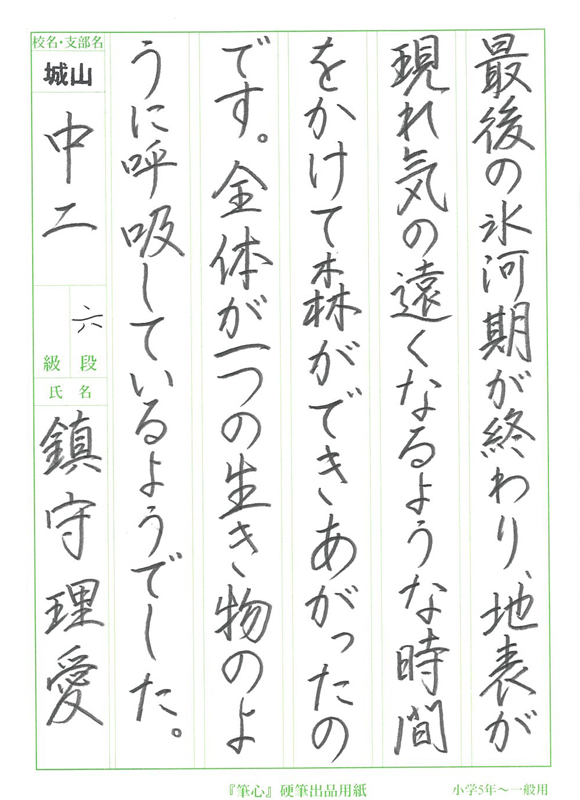 最後の氷河期が終わり、地表が
現れ気の遠くなるような時間
をかけて森ができあがったの
です。全体が一つの生き物のよ
うに呼吸しているようでした。
校名・支部名
城山
中二
六
級 段
氏 名
鎮守理愛
『筆心』硬筆出品用紙
小学5年～一般用